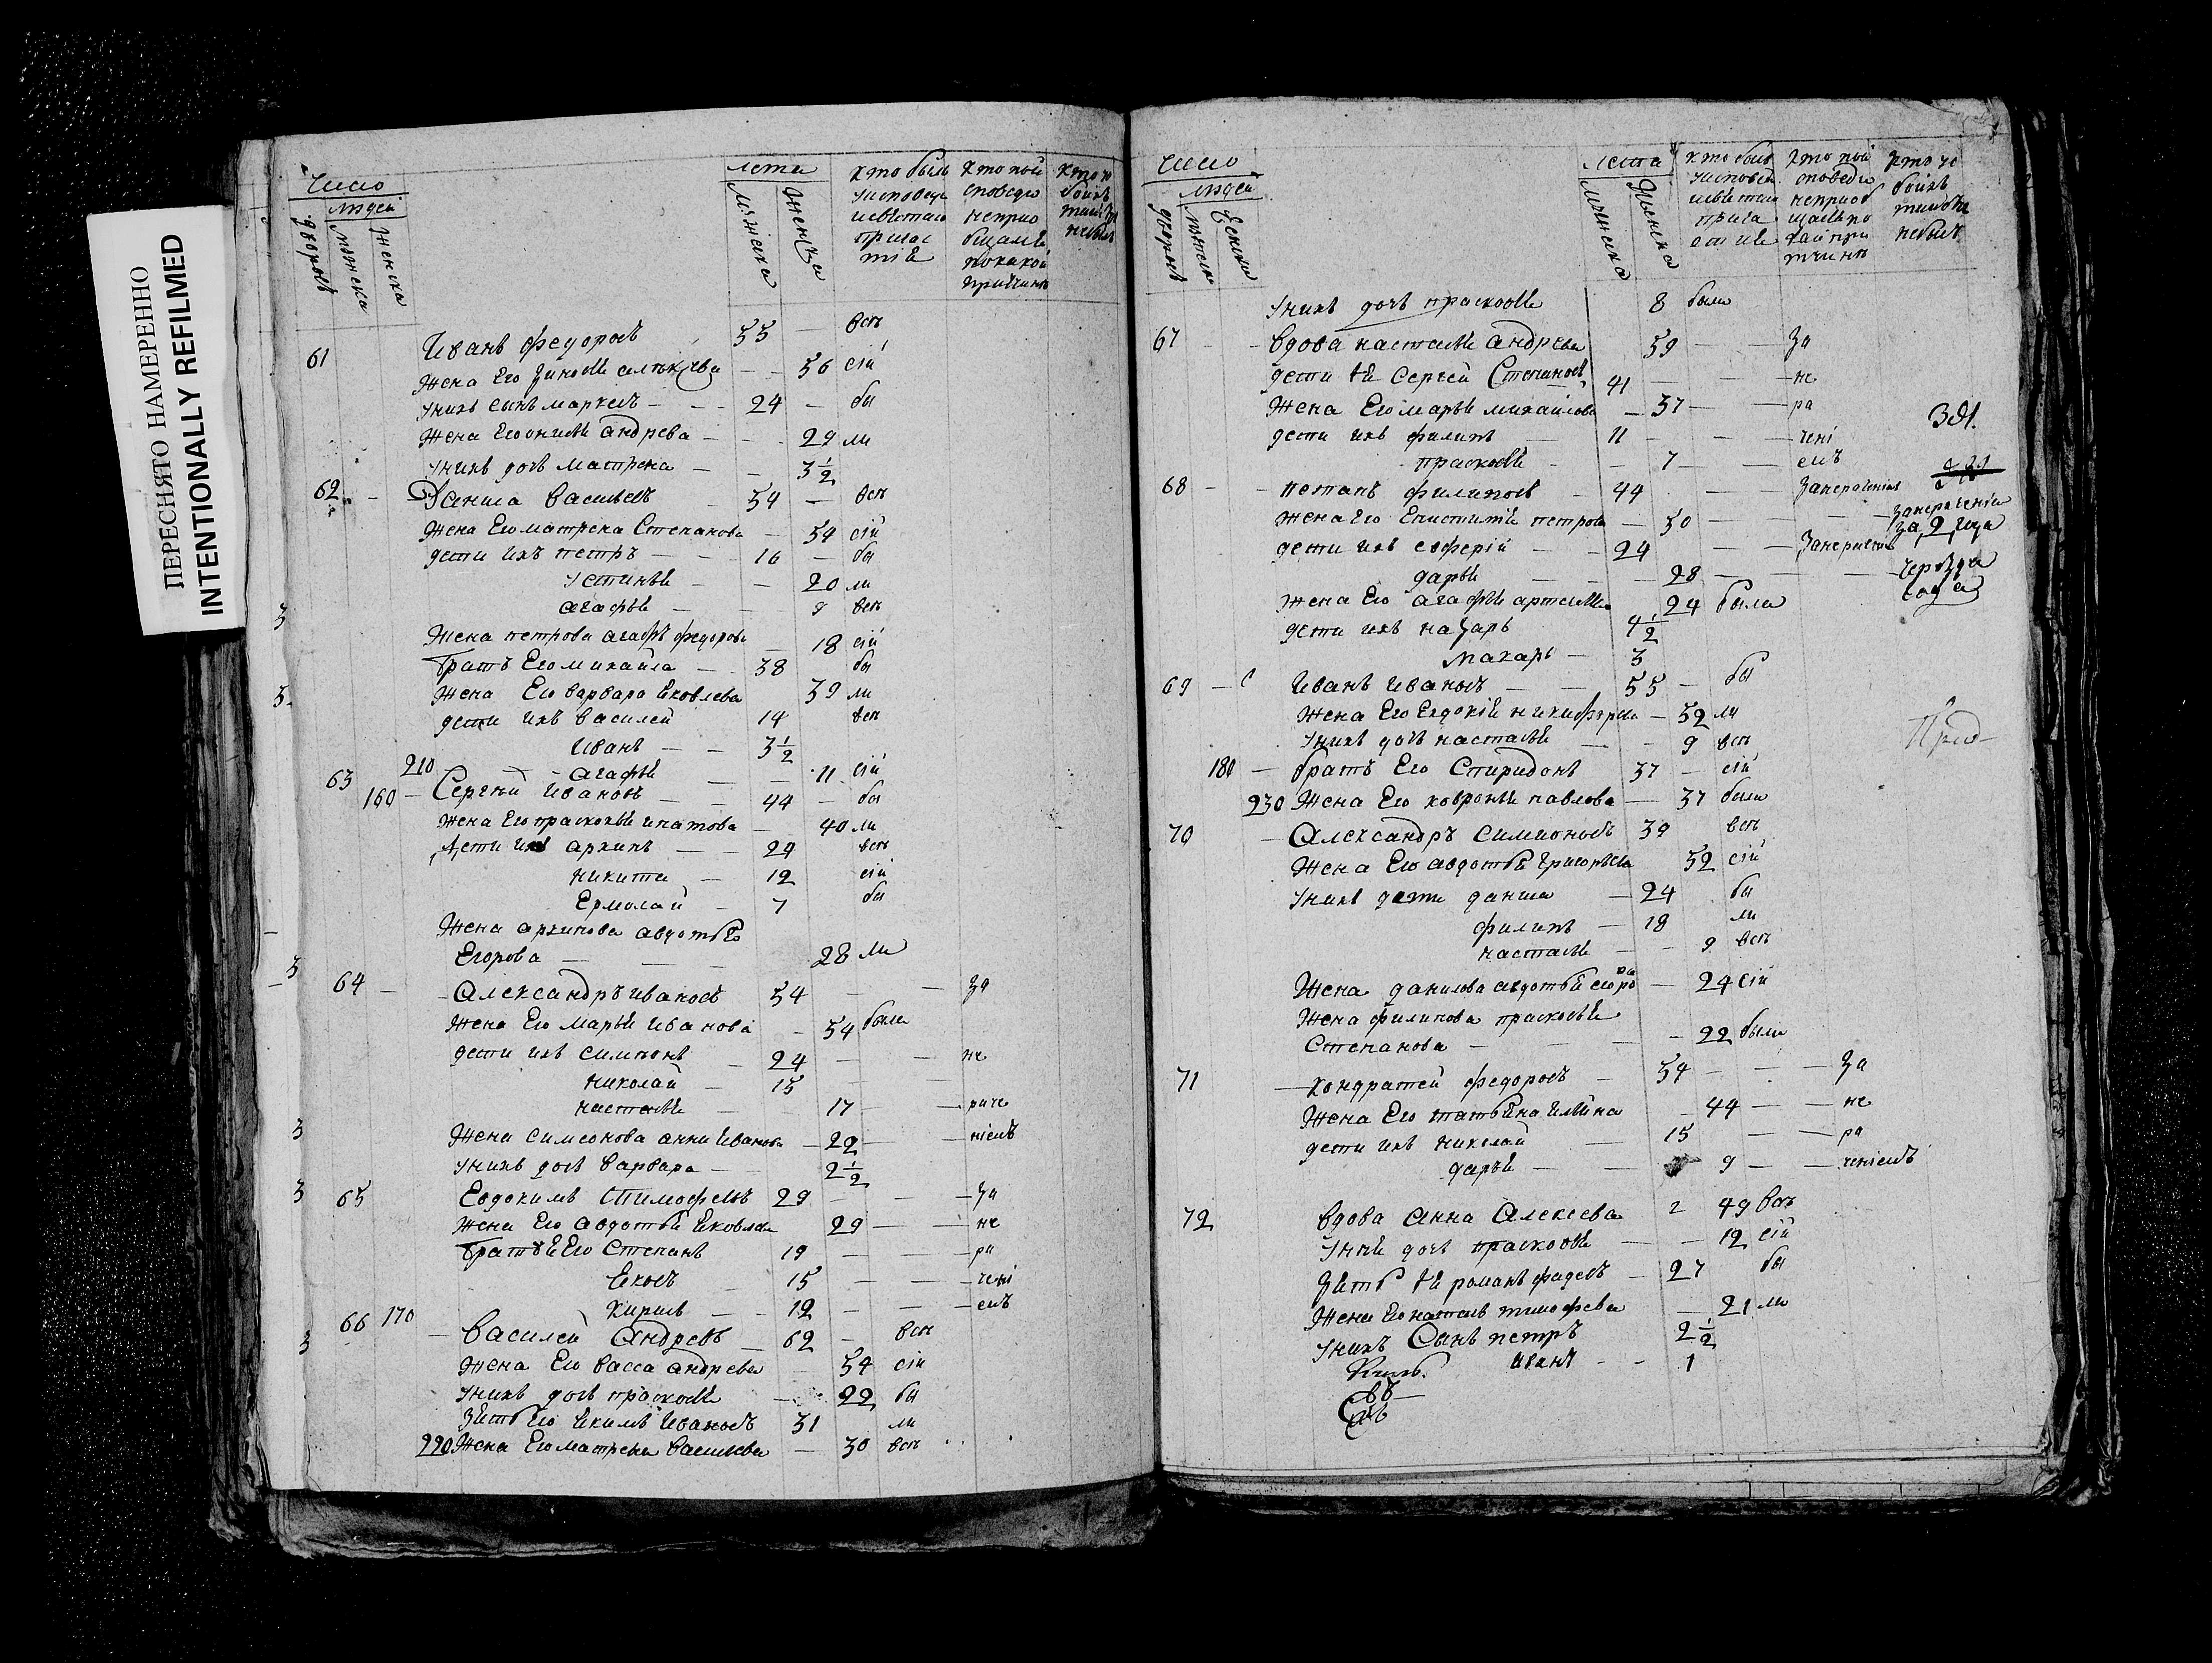 ПЕРЕСНЯТО НАМЕРЕННО
INTENTIONALLY REFILMED
Число
людей
дворовъ
мужеска
женска
лета
мужеска
женска
кто былъ
исповеди
и святаго
причас
тія
кто той
споведи
неприо
бщался
по какой
причине
61 Иванъ федоровъ 55 — всѣ
жена его зиновія алѣксѣева — 56 сіи
у нихъ сынъ маркелъ — 24 — бы
жена его андрева — 29 ли
у нихъ дочь матрена — 3½
62 Данила васильевъ 54 — всѣ
жена его матрена Степанова — 54 сіи
дети ихъ петръ — 16 — бы
устинья — 20 ли
агафья — 9 всѣ
жена петрова агафья федорова — 18 сіи
братъ его михайла — 38 бы
жена его варвара яковлева 39 ли
дети ихъ василей 14 всѣ
иванъ — 3½
210 агафья — 11 сіи
63 160 Сергѣй ивановъ — 44 — бы
жена его прасковья ипатова — 40 ли
дети ихъ архипъ — 24 всѣ
никита — 12 сіи
ермолай — 7 бы
жена архипова авдотья
егорова — 28 ли
64 Александръ ивановъ 54 — за
жена его марья иванова — 54 были
дети ихъ симионъ — 24 — не
николай — 15
настасья — 17 — раче
жена симеонова анна иванова — 22 — ніемъ
у нихъ дочь варвара — 2½
65 Евдокимъ тимофевъ 29 — за
жена его авдотья яковлева 29 — не
братья его степанъ 19 — ра
яковъ 15 — чені
кирилъ — 12 — емъ
66 170 василей андревъ 62 — всѣ
жена его васса андрева 54 сіи
у нихъ дочь прасковья — 22 бы
зять его якимъ ивановъ 31 ли
220 жена его матрена васильева — 30 всѣ
Число
людей
дворовъ
лета
мужеска
женска
кто былъ
кто той
споведи
у нихъ дочь прасковья 8 были
67 вдова настасья андрева 59 — за
дети ея Сергей Степановъ 41 — не
жена его марья михайлова — 37 — ра
дети ихъ филипъ 11 — чені
прасковья — 7 — емъ
68 потапъ филиповъ — 44 — занерачениемъ
жена его епистимія петрова — 50 — занерачениемъ
за 2 года
дети ихъ елферій — 24 — занерачениемъ
дарья — 28
жена его агафья 24 была
дети ихъ назаръ 4½
макаръ — 3
69 Иванъ ивановъ — 55 — бы
жена его евдокія никифорова — 52 ли
у нихъ дочь настасья — 9 всѣ
180 братъ его Спиридонъ 37 — сіи
230 жена его ховронья павлова — 37 были
70 Александръ симионовъ 39 всѣ
жена его авдотья григорьева 52 сіи
у нихъ дети данила — 24 бы
филипъ — 18 ли
настасья — 9 всѣ
жена данилова авдотья — 24 сіи
жена филипова прасковья
Степанова — 22 были
71 кондратей федоровъ — 54 — за
жена его татьяна ильина — 44 — не
дети ихъ николай — 15 — ра
дарья — 9 — ченіемъ
72 вдова анна алексева 49 всѣ
у ней дочь прасковья — 12 сіи
зять ея романъ фадевъ — 27 бы
жена его тимофева — 21 ли
у нихъ Сынъ петръ 2½
иванъ — 1